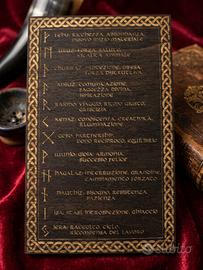 ᚠ FEHU: RICCHEZZA, ABBONDANZA,
NUOVO INIZIO MATERIALE
URUZ: FORZA, SALUTE,
VITALITÀ ANIMALE
PROTEZIONE, DIFESA,
FORZA DISTRUTTIVA
ANSUZ: COMUNICAZIONE,
SAGGEZZA DIVINA,
ISPIRAZIONE
RAIDHO: VIAGGIO, RITMO GIUSTO,
KENAZ: CONOSCENZA, CREATIVITÀ,
ILLUMINAZIONE
GEBO: PARTNERSHIP,
DONO RECIPROCO, EQUILIBRIO
WUNJO: GIOIA, ARMONIA,
SUCCESSO FELICE
HAGALAZ: INTERRUZIONE, GRANDINE,
CAMBIAMENTO FORZATO
NAUTHIZ: BISOGNO, RESISTENZA,
PAZIENZA
ISA: STASI, INTROSPEZIONE, GHIACCIO
JERA: RACCOLTO, CICLO,
RICOMPENSA DEL LAVORO
subito